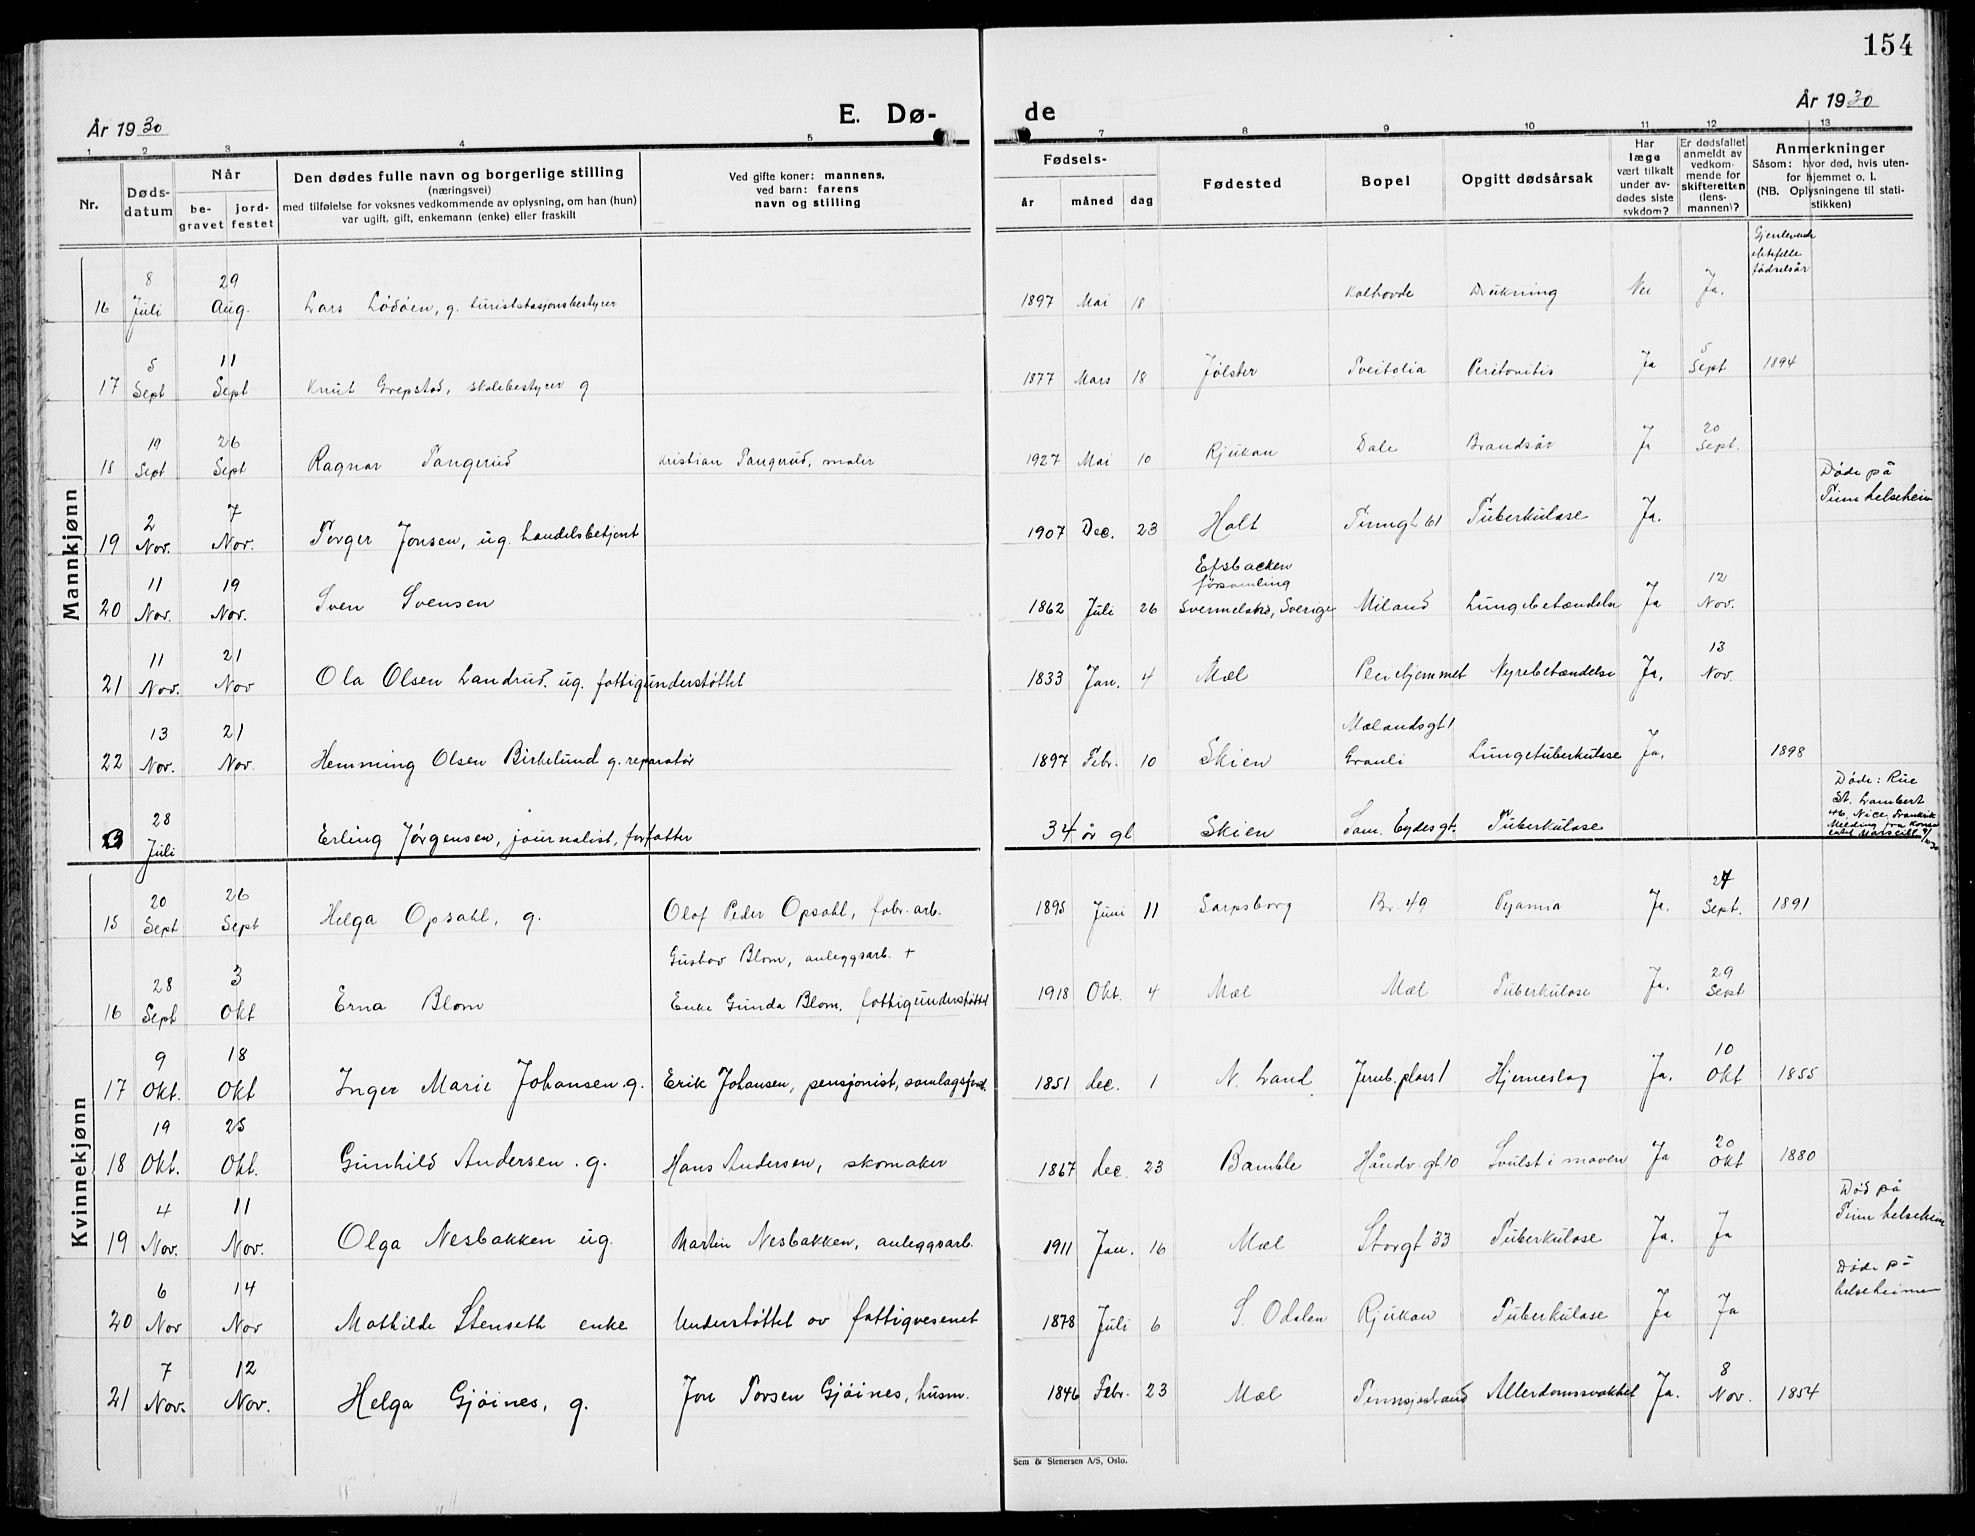 154
År 1930
E. Dø-
de
År 1930
1 2 3 4 5 7 8 9 10 11 12 13
Nr.
Døds-
datum
Når
be-
gravet
jord-
festet
Den dødes fulle navn og borgerlige stilling
(næringsvei)
med tilføielse for voksnes vedkommende av oplysning, om han (hun)
var ugift, gift, enkemann (enke) eller fraskilt
Ved gifte koner: mannens,
ved barn: farens
navn og stilling
Fødsels-
år måned dag
Fødested
Bopel
Opgitt dødsårsak
Har
læge
vært tilkalt
under av-
dødes siste
sykdom?
Er dødsfallet
anmeldt av
vedkom-
mende for
skifteretten
(lens-
mannen)?
Anmerkninger
Såsom: hvor død, hvis uten-
for hjemmet o. l.
(NB. Oplysningene til stati-
stikken)
Gjenlevende
ektefelle
fødselsår
Mannkjønn
16 8 Juli 29 Aug. Lars Lødøen, g. turiststasjonsbestyrer 1897 Mai 18 Kalhovde Drukning Nei Ja.
17 5 Sept 11 Sept Knut Grepstad, skolebestyrer g 1877 Mars 18 Jølster Tveitolia Peritonitis Ja 5 Sept 1894
18 19 Sept 26 Sept Ragnar Tangerud Kristian Tangerud, maler 1927 Mai 10 Rjukan Dale Brandsår Ja 20 Sept.
19 2 Nov. 7 Nov. Torger Jonsen, ug. handelsbetjent 1907 Dec. 23 Holt Tinngt 61 Tuberkulose Ja. Døde på Tinn helseheim
20 11 Nov. 19 Nov. Sven Svensen 1862 Juli 26 församling Sverige Miland Lungebetændelse Ja 12 Nov.
21 11 Nov. 21 Nov Ola Olsen Landrud. ug. fattigunderstøttet 1833 Jan. 4 Mæl Pleiehjemmet Nyrebetændelse Ja. 13 Nov.
22 13 Nov. 21 Nov. Hemming Olsen Birkelund g. reparatør 1897 Febr. 10 Skien Mælandsgt 1 Granli Lungetuberkulose Ja. 1898
23 28 Juli Erling Jørgensen, journalist, forfatter 34 år gl Skien Sam. Eydesgt. Tuberkulose Døde: Rue
St. Lambert
46. Nice, Frankrik
Melding fra Konsu
Kvinnekjønn
15 20 Sept 26 Sept Helga Opsahl, g. Olaf Peder Opsahl, fabr. arb. 1895 Juni 11 Sarpsborg Br. 49 Ja. 24 Sept. 1891
16 28 Sept 3 Okt Erna Blom Gustav Blom, anleggsarb. +
Enke Gunda Blom, fattigunderstøttet 1918 Okt. 4 Mæl Mæl Tuberkulose Ja. 29 Sept
17 9 Okt. 18 Okt Inger Marie Johansen. g. Erik Johansen, pensjonist, 1851 dec. 1 N. Land Jernb. plass 1 Hjerneslag Ja. 10 Okt 1855
18 19 Okt. 25 Okt. Gunhild Andersen. g. Hans Andersen, skomaker 1867 dec. 23 Bamble Håndv. gt. 10 Svulst i maven Ja 20 Okt 1880
19 4 Nov. 11 Nov. Olga Nesbakken ug. Martin Nesbakken, anleggsarb. 1911 Jan. 16 Mæl Storgt 33 Tuberkulose Ja. Ja Død på Tinn helseheim
20 6 Nov 14 Nov Mathilde Stenseth enke Understøttet av fattigvesenet 1878 Juli 6 S. Odalen Rjukan Tuberkulose Ja Ja Døde på helseheimen
21 7 Nov. 12 Nov. Helga Gjøines, g. Jon Torsen Gjøines, husm. 1846 Febr. 23 Mæl Tinnsjøstrand Alderdomssvakhet Ja. 8 Nov. 1854
Sem & Stenersen A/S, Oslo.